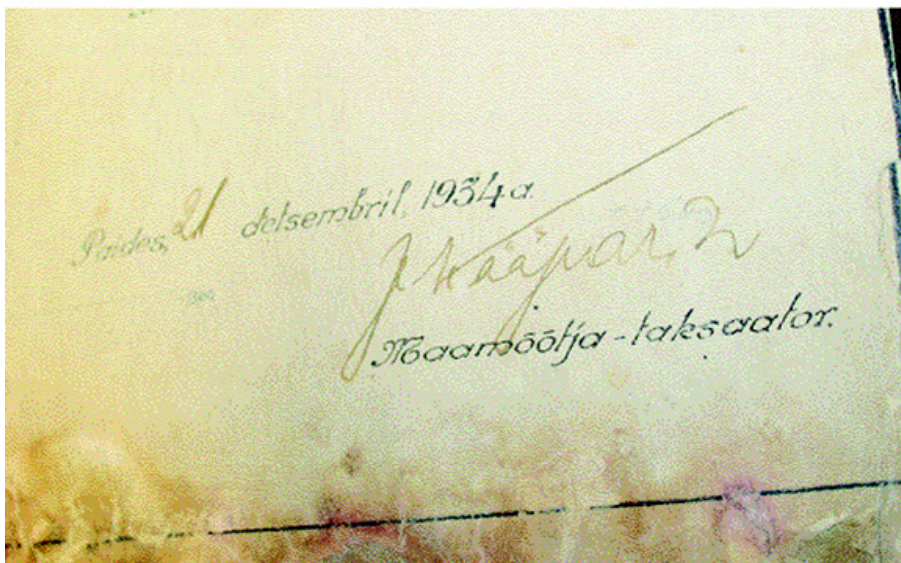 Paides, 21 detsembril, 1934 a.
Maamõõtja-taksaator.